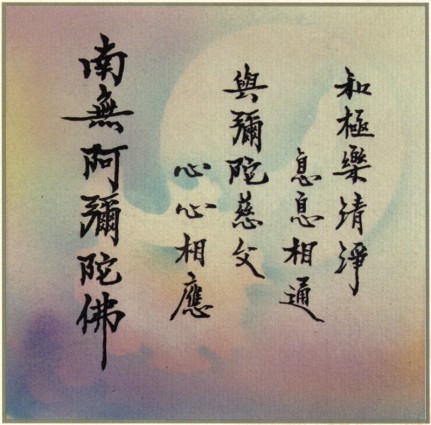 和極樂清淨
息息相通
與彌陀慈父
心心相應
南無阿彌陀佛